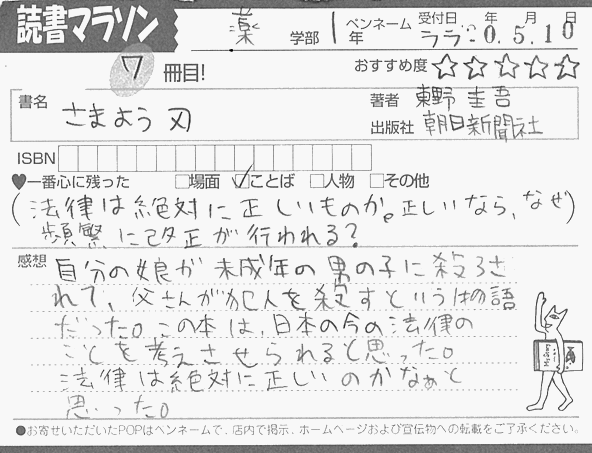 読書マラソン
薬 学部 1年 ペンネーム ララ
受付日 年 月 日 20.5.10
7 冊目! おすすめ度 ☆☆☆☆☆
書名 さまよう刃
著者 東野圭吾
出版社 朝日新聞社
ISBN
♥一番心に残った □場面 ☑ことば □人物 □その他
(法律は絶対に正しいものか。正しいなら、なぜ
頻繁に改正が行われる?)
感想 自分の娘が未成年の男の子に殺るさ
れて、父さんが犯人を殺すという物語
だった。この本は、日本の今の法律の
ことを考えさせられると思った。
法律は絶対に正しいのかなぁと
思った。
●お寄せいただいたPOPはペンネームで、店内で掲示、ホームページおよび宣伝物への転載をご了承ください。